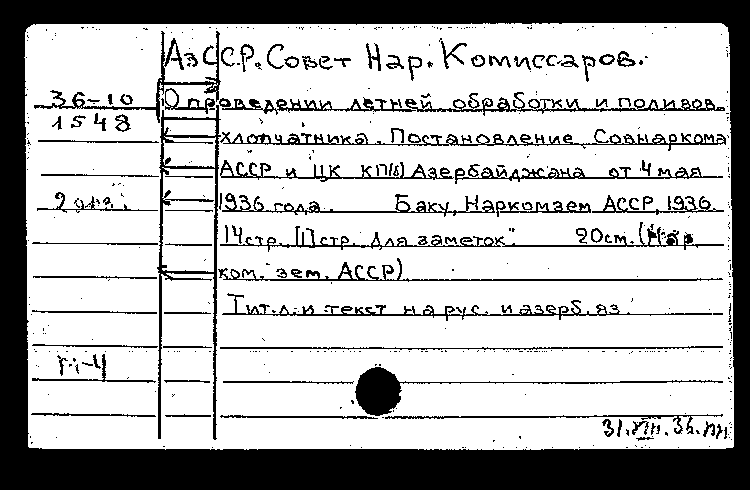 АзССР. Совет Нар. Комиссаров.
36-10
1548
О проведении летней обработки и поливов
хлопчатника. Постановление Совнаркома
АССР и ЦК КП(б) Азербайджана от 4 мая
2 экз.
1936 года. Баку, Наркомзем АССР, 1936.
14стр. [1]стр. „Для заметок". 20см. (Нар.
ком. зем. АССР)
Тит.л. и текст на рус. и азерб. яз.
31.VIII.36.